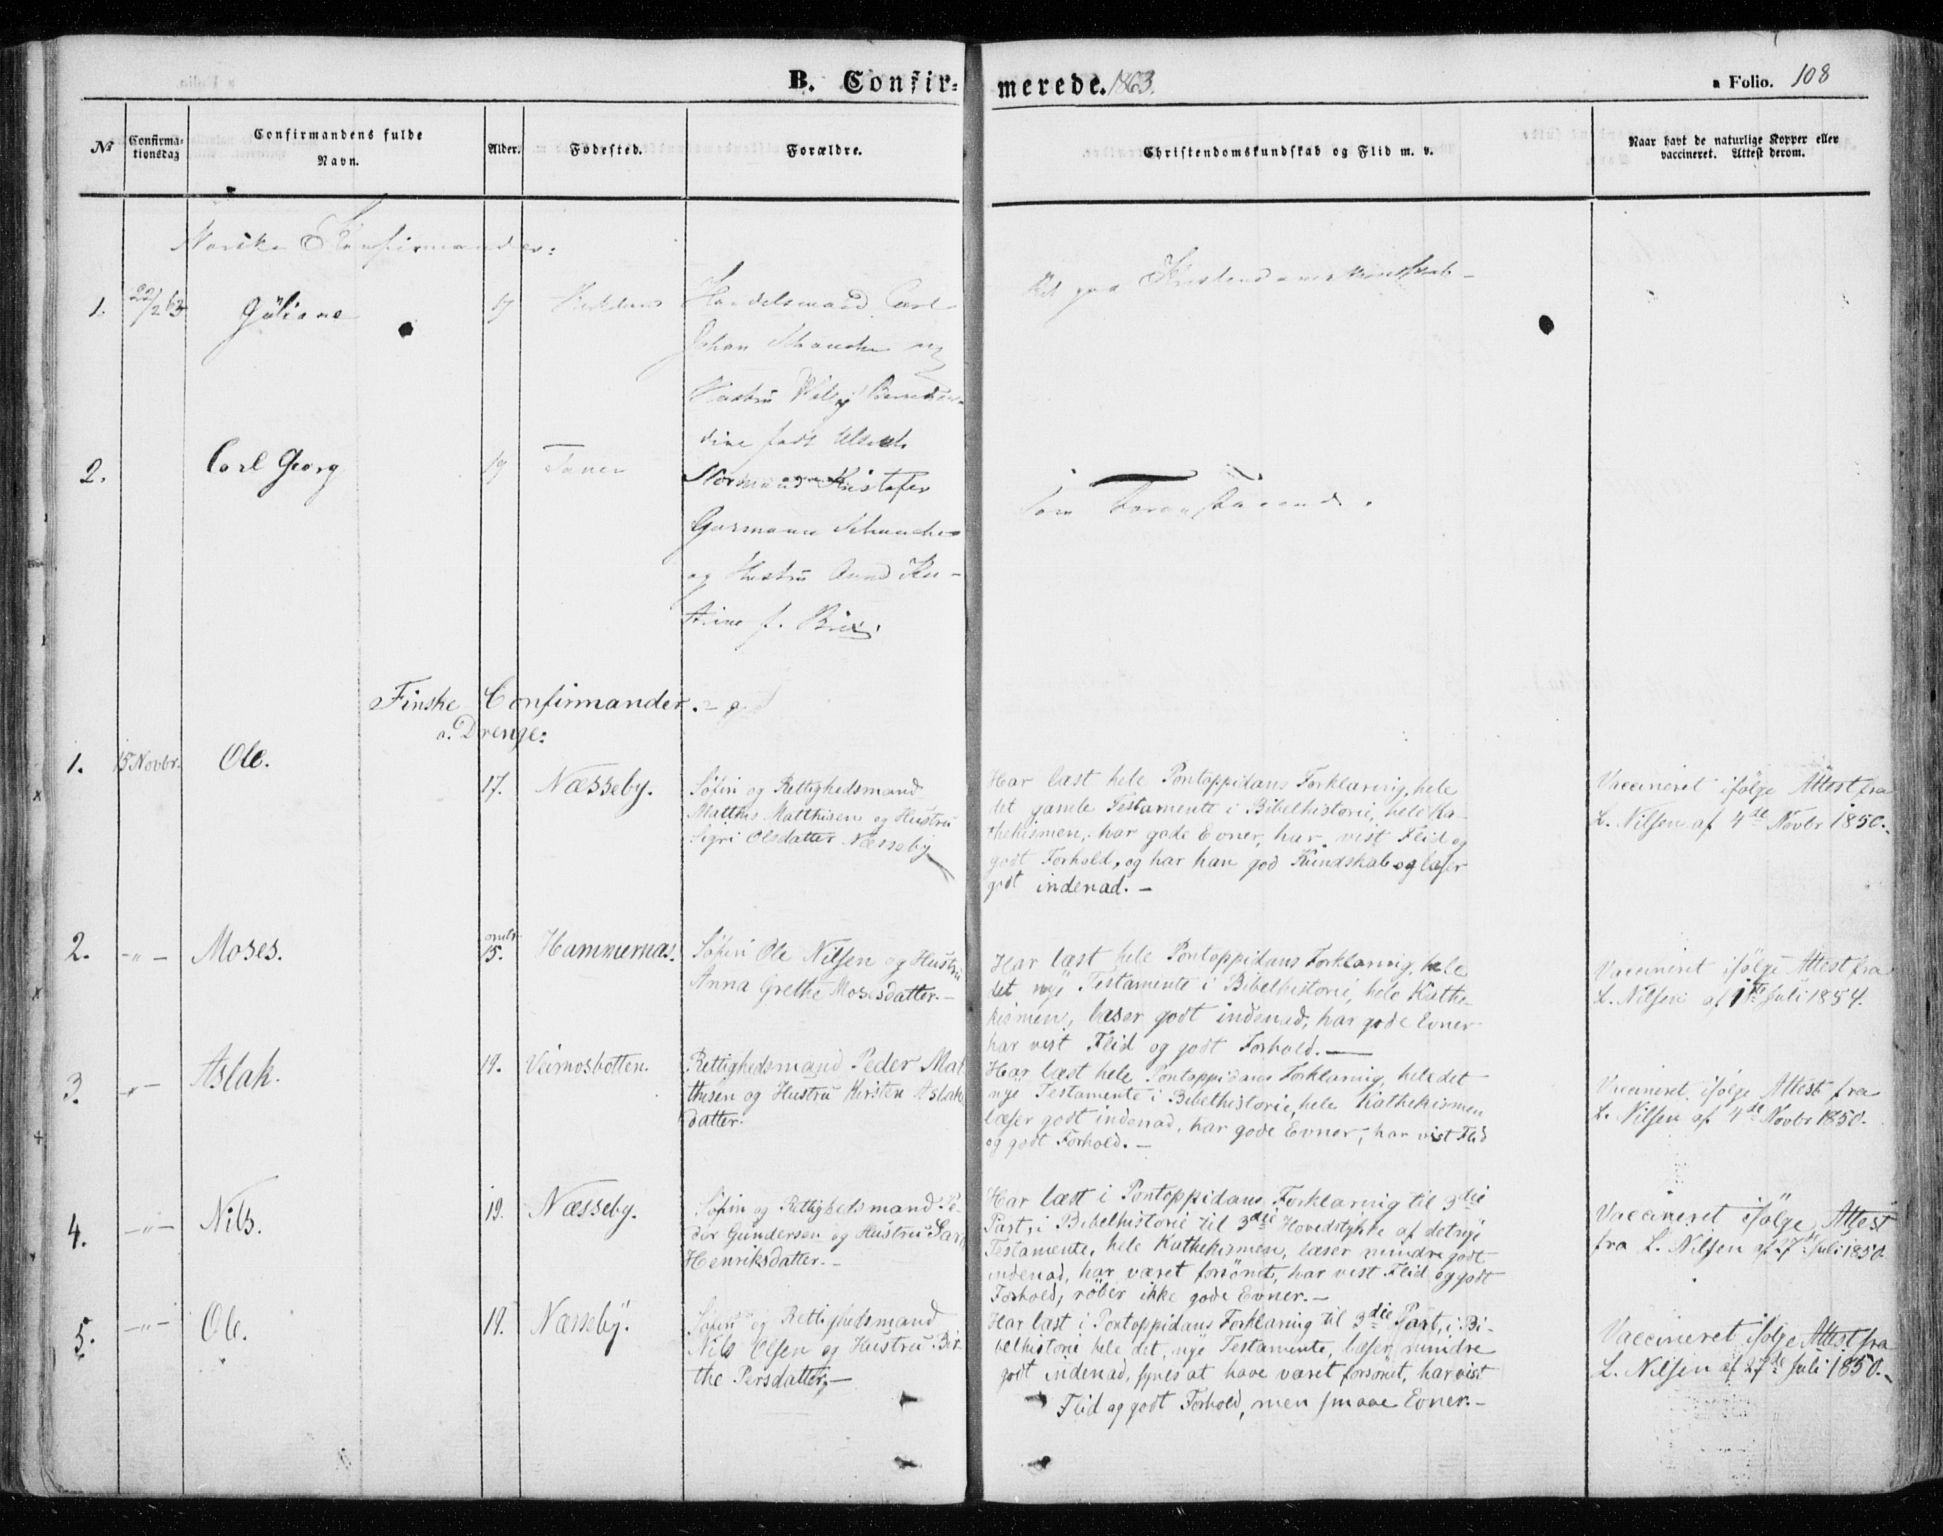 B. Confir-
merede. 1863.
a Folio. 108
№
Confirma-
tionsdag
Confirmandens fulde
Navn.
Alder.
Fødested.
Forældre.
Christendomskundskab og Flid m. v.
Naar havt de naturlige Kopper eller
vaccineret. Attest derom.
Norske Konfirmander:
1. 22/2 63 Juliane 17 Handelsmand Carl
Johan Schanche og
Hustru
født
paa Kristendomskundskab
2. Carl Georg 19 Tanen
Kristofer
Garmann Schanche
og Hustru Anna Ka-
trine f. Brix.
Som Foranstaaende.
Finske Confirmander.
a. Drenge:
1. 15 Novbr. Ole. 17. Næsseby.
Søfin og Rettighedsmand
Matthis Matthisen og Hustru
Sigri Olsdatter Næsseby
Har læst hele Pontoppidans Forklaring, hele
det gamle Testamente i Bibelhistorie, hele Ka-
thekismen, har gode Evner, har vist Flid og
godt Forhold, og har han god Kundskab og læser
godt indenad. —
Vaccineret ifølge Attest fra
L. Nilsen af 4de Novbr 1850.
2. -"- Moses. 15. Hammernæs.
Søfin Ole Nilsen og Hustru
Anna Grethe Mosesdatter. —
Har læst hele Pontoppidans Forklaring, hele
det nye Testamente i Bibelhistorie, hele Kathe-
kismen, læser godt indenad, har gode Evner
har vist Flid og godt Forhold. —
Vaccineret ifølge Attest fra
L. Nilsen af 1ste Juli 1854.
3. -"- Aslak. 19. Veinesbotten.
Rettighedsmand Peder Mat
thisen og Hustru Kirsten Aslak
datter.
Har læst hele Pontoppidans Forklaring, hele det
nye Testamente i Bibelhistorie, hele Kathekismen
læser godt indenad, har gode Evner, har vist Flid
og godt Forhold. —
Vaccineret ifølge Attest fra
L. Nilsen af 4de Novbr 1850.
4. -"- Nils. 19. Næsseby.
Søfin og Rettighedsmand Pe-
der Gundersen og Hustru Sara
Henriksdatter. —
Har læst i Pontoppidans Forklaring til 3die
Part, i Bibelhistorie til 3die Hovedstykke af det nye
Testamente, hele Kathekismen, læser mindre godt
indenad, har været forsømt, har vist Flid og godt
Forhold, røber ikke gode Evner. —
Vaccineret ifølge Attest
fra L. Nilsen af 27de Juli 1850.
5. -"- Ole. 19. Næsseby.
Søfin og Rettighedsmand
Nils Olsen og Hustru Bir-
the Persdatter, —
Har læst i Pontoppidans Forklaring til 3die Part, i Bi-
belhistorie hele det nye Testamente, læser mindre
godt indenad, synes at have været forsømt, har vist
Flid og godt Forhold, men smaae Evner. —
Vaccineret ifølge Attest fra
L. Nilsen af 27de Juli 1850.